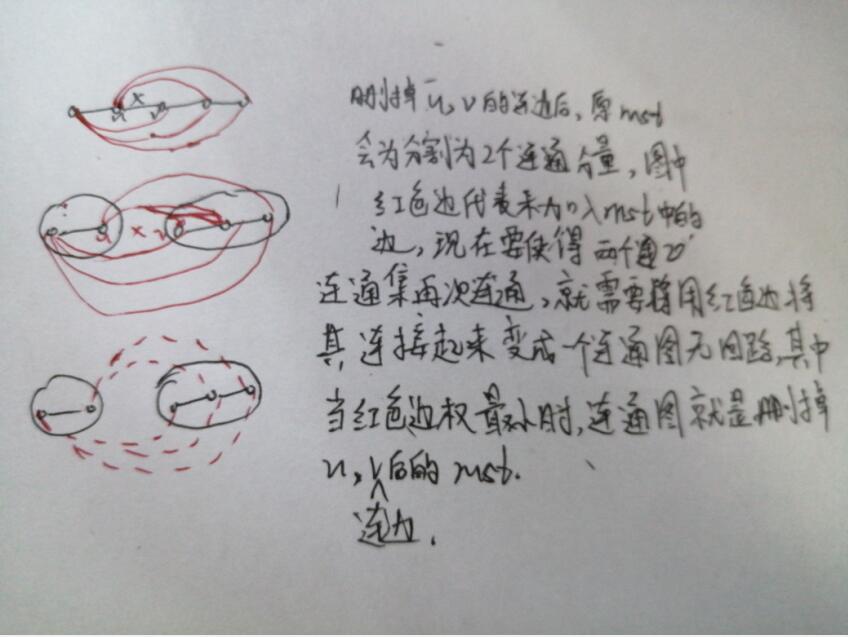 x
u
v
x
v
删掉 u, v 的连边后, 原mst
会为分割为2个连通分量, 图中
红色边代表未加入mst中的
边, 现在要使得 两个通
连通集再次连通, 就需要将用红色边将
其连接起来变成一个连通图无回路, 其中
当红色边权最小时, 连通图就是删掉
u, v后的 mst.
连边.